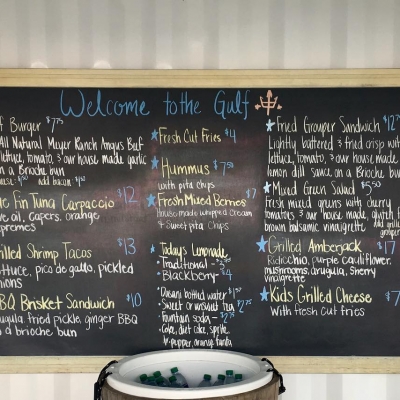 Welcome to the Gulf
Burger $7.75
All Natural Meyer Ranch Angus Beef
lettuce, tomato, & our house made garlic
on a Brioche bun
add bacon
Fin Tuna Carpaccio $12
olive oil, capers, orange
supremes
Grilled Shrimp Tacos $13
lettuce, pico de gallo, pickled
onions
BBQ Brisket Sandwich $10
arugula, fried pickle, ginger BBQ
a brioche bun
Fresh Cut Fries $4
Hummus $7.50
with pita chips
Fresh Mixed Berries $7
house made whipped cream
& sweet pita chips
Today's Lemonade
Traditional
Blackberry $4
Dasani bottled water
Sweet or unsweet tea
Fountain soda
Coke, diet coke, sprite
dr. pepper, orange fanta
Fried Grouper Sandwich
Lightly battered & fried crisp with
lettuce, tomato, & our house made
lemon dill sauce on a Brioche
Mixed Green Salad $5.50
Fresh mixed greens with cherry
tomatoes & our house made, gluten f
brown balsamic vinaigrette
Grilled Amberjack $17
Radicchio, purple cauliflower,
mushrooms, arugula, sherry
vinaigrette
Kids Grilled Cheese $7
With fresh cut fries